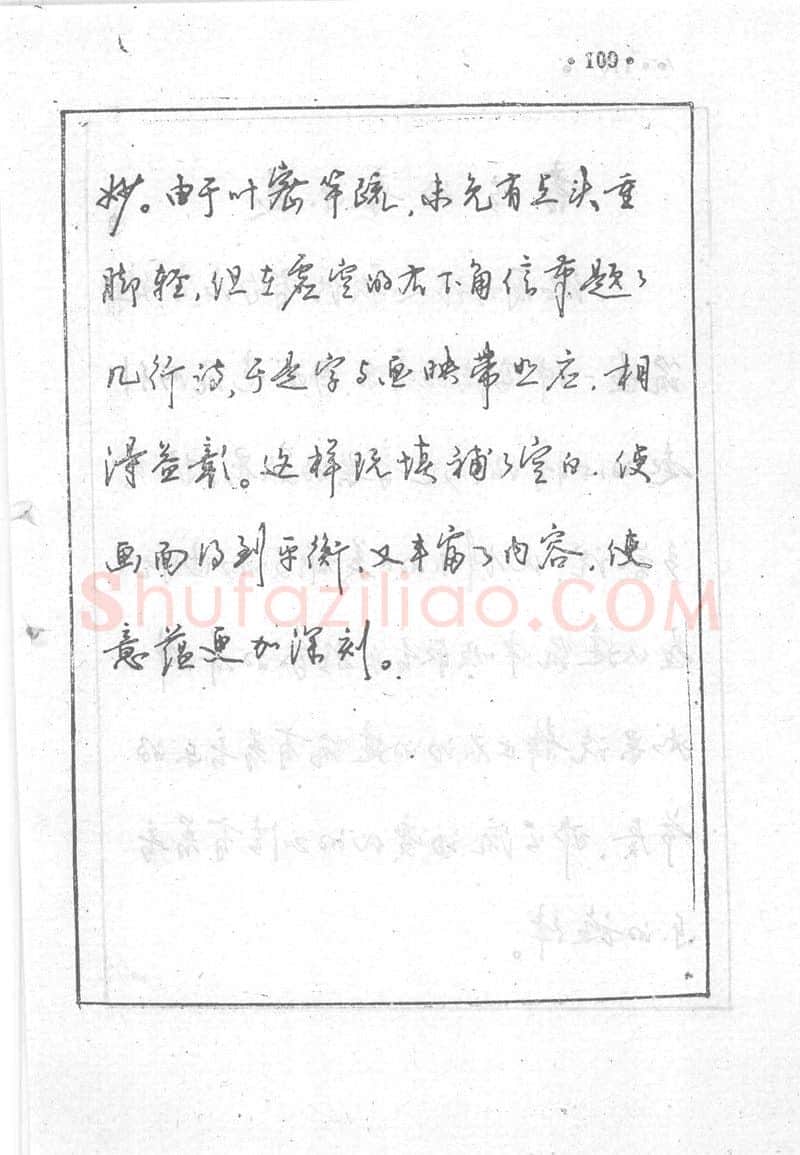 ·109·
妙。由于叶密竿疏,未免有点头重
脚轻,但在虚空的右下角信笔题了
几行诗,于是字与画映带照应,相
得益彰。这样既填补了空白,使
画面得到平衡,又丰富了内容,使
Shufaziliao.COM
意蕴更加深刻。